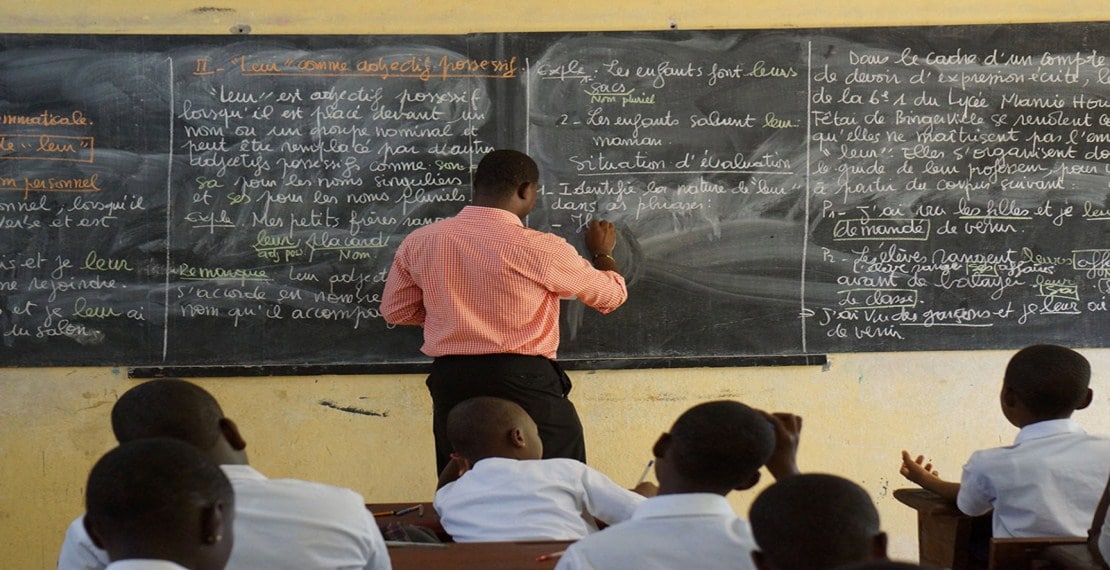 ammaticale.
"leur"
personnel
lorsqu'il
et est
et je leur
rejoindre.
et je leur ai
salon.
II - "Leur" comme adjectif possessif.
"Leur" est adjectif possessif
lorsqu'il est placé devant un
nom ou un groupe nominal et
peut être remplacé par d'autres
adjectifs possessifs comme son
sa pour les noms singuliers
et ses pour les noms pluriels.
Exple: Mes petits frères rangent
leur placard
adj pos. Nom
Remarque: Leur adjectif
s'accorde en nombre
nom qu'il accompa
Exple 1- Les enfants font leurs
sacs
Nom pluriel
2- Les enfants saluent leur
maman.
Situation d'évaluation
1- Identifie la nature de "leur"
dans ces phrases:
Dans le cadre d'un compte
de devoir d'expression écrite, l
de la 6e 1 du Lycée Mamie Hou
Fétai de Bingerville se rendent co
qu'elles ne maîtrisent pas l'em
"leur". Elles s'organisent do
le guide de leur professeur, pour
à partir du corpus suivant:
P1- J'ai vu les filles et je leu
demandé de venir.
P2- Les élèves rangent leurs aff
avant de balayer leur sa
de classe
J'ai vu des garçons et je leur ai
de venir